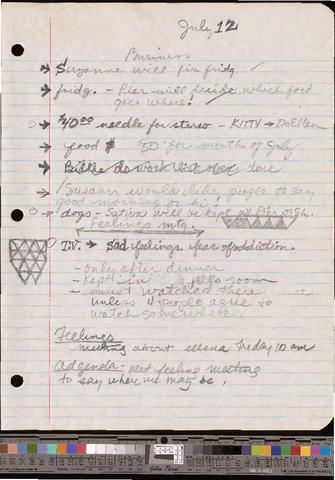 July 12
Business
→ Suzanne will fix fridg.
→ fridg. - Pier will decide which food
goes where!
→ $40.00 needle for stereo - KITTY → DoEllen
→ food $ 50 for months of July
→ Billie do work list over done
→ Susann would like people to say
good morning or hi!
→ dogs - Sativa will be kept
Feelings mtg.
T.V. → Sad feelings fear of addiction.
- only after dinner
- Kept in room
- must watched there
unless 4 people agree to
watch somewhere.
Feelings
meeting about ellena Friday 10 am
Adgenda - next feeling meeting
to say where we may be.